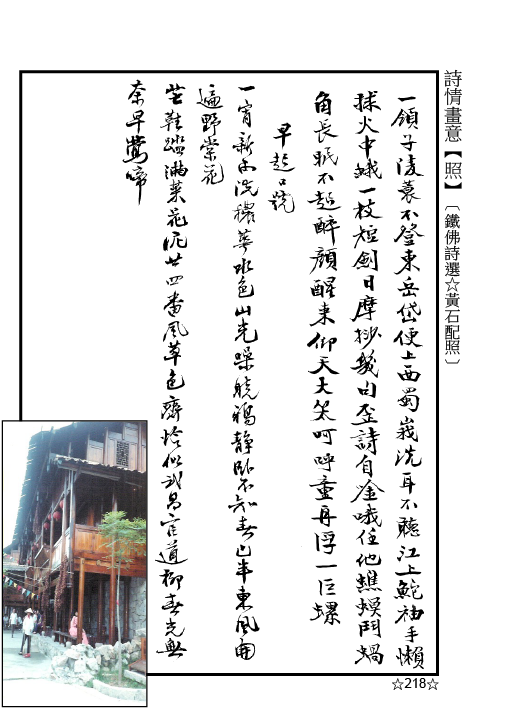 詩情畫意【照】〔鐵佛詩選☆黃石配照〕
一領子陵蓑不登東岳岱便上西蜀峩洗耳不聽江上鮀袖手懶
捄火中蛾一枝短劍日摩挱幾句歪詩自唫哦任他蟭螟鬥蝸
角長眠不起醉顏醒來仰天大笑呵呼童再浮一巨螺
早起口號
一宵新雨洗穠華水色山光噪曉鴉靜臥不知春已半東風開
遍野棠花
芒鞋踏滿菜花泥廿四番風草色齊恰似武昌官道柳春光無
奈早鶯啼
☆218☆